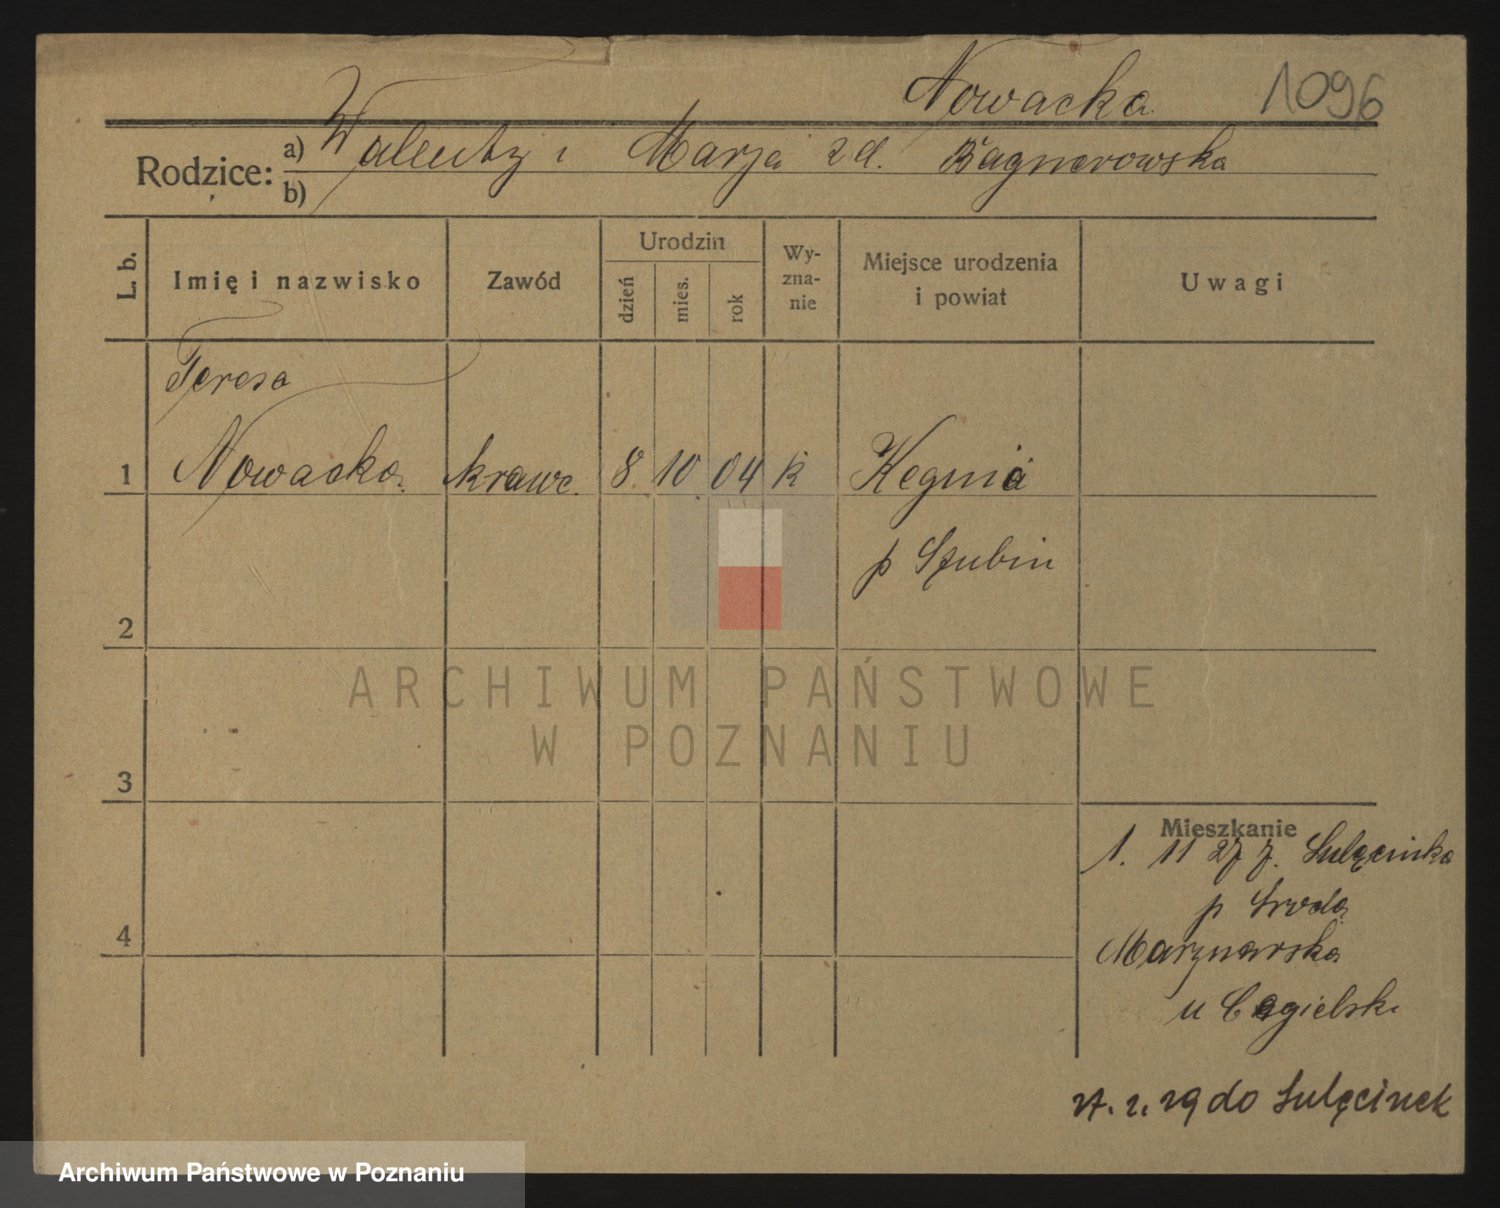 Nowacka 1096
Rodzice: a) Walenty i Marja zd. Bagnerowska
b)
L. b. Imię i nazwisko Zawód Urodzin dzień mies. rok Wy-zna-nie Miejsce urodzenia i powiat Uwagi
Teresa
1 Nowacka krawc. 8 10 04 k Kegnia
p Szubin
2
3
Mieszkanie
1. 11 27 z. Sulęcinka
p Środa
4 Marynarska
u Cegielsk.
do Sulęcinek
ARCHIWUM PAŃSTWOWE
W POZNANIU
Archiwum Państwowe w Poznaniu